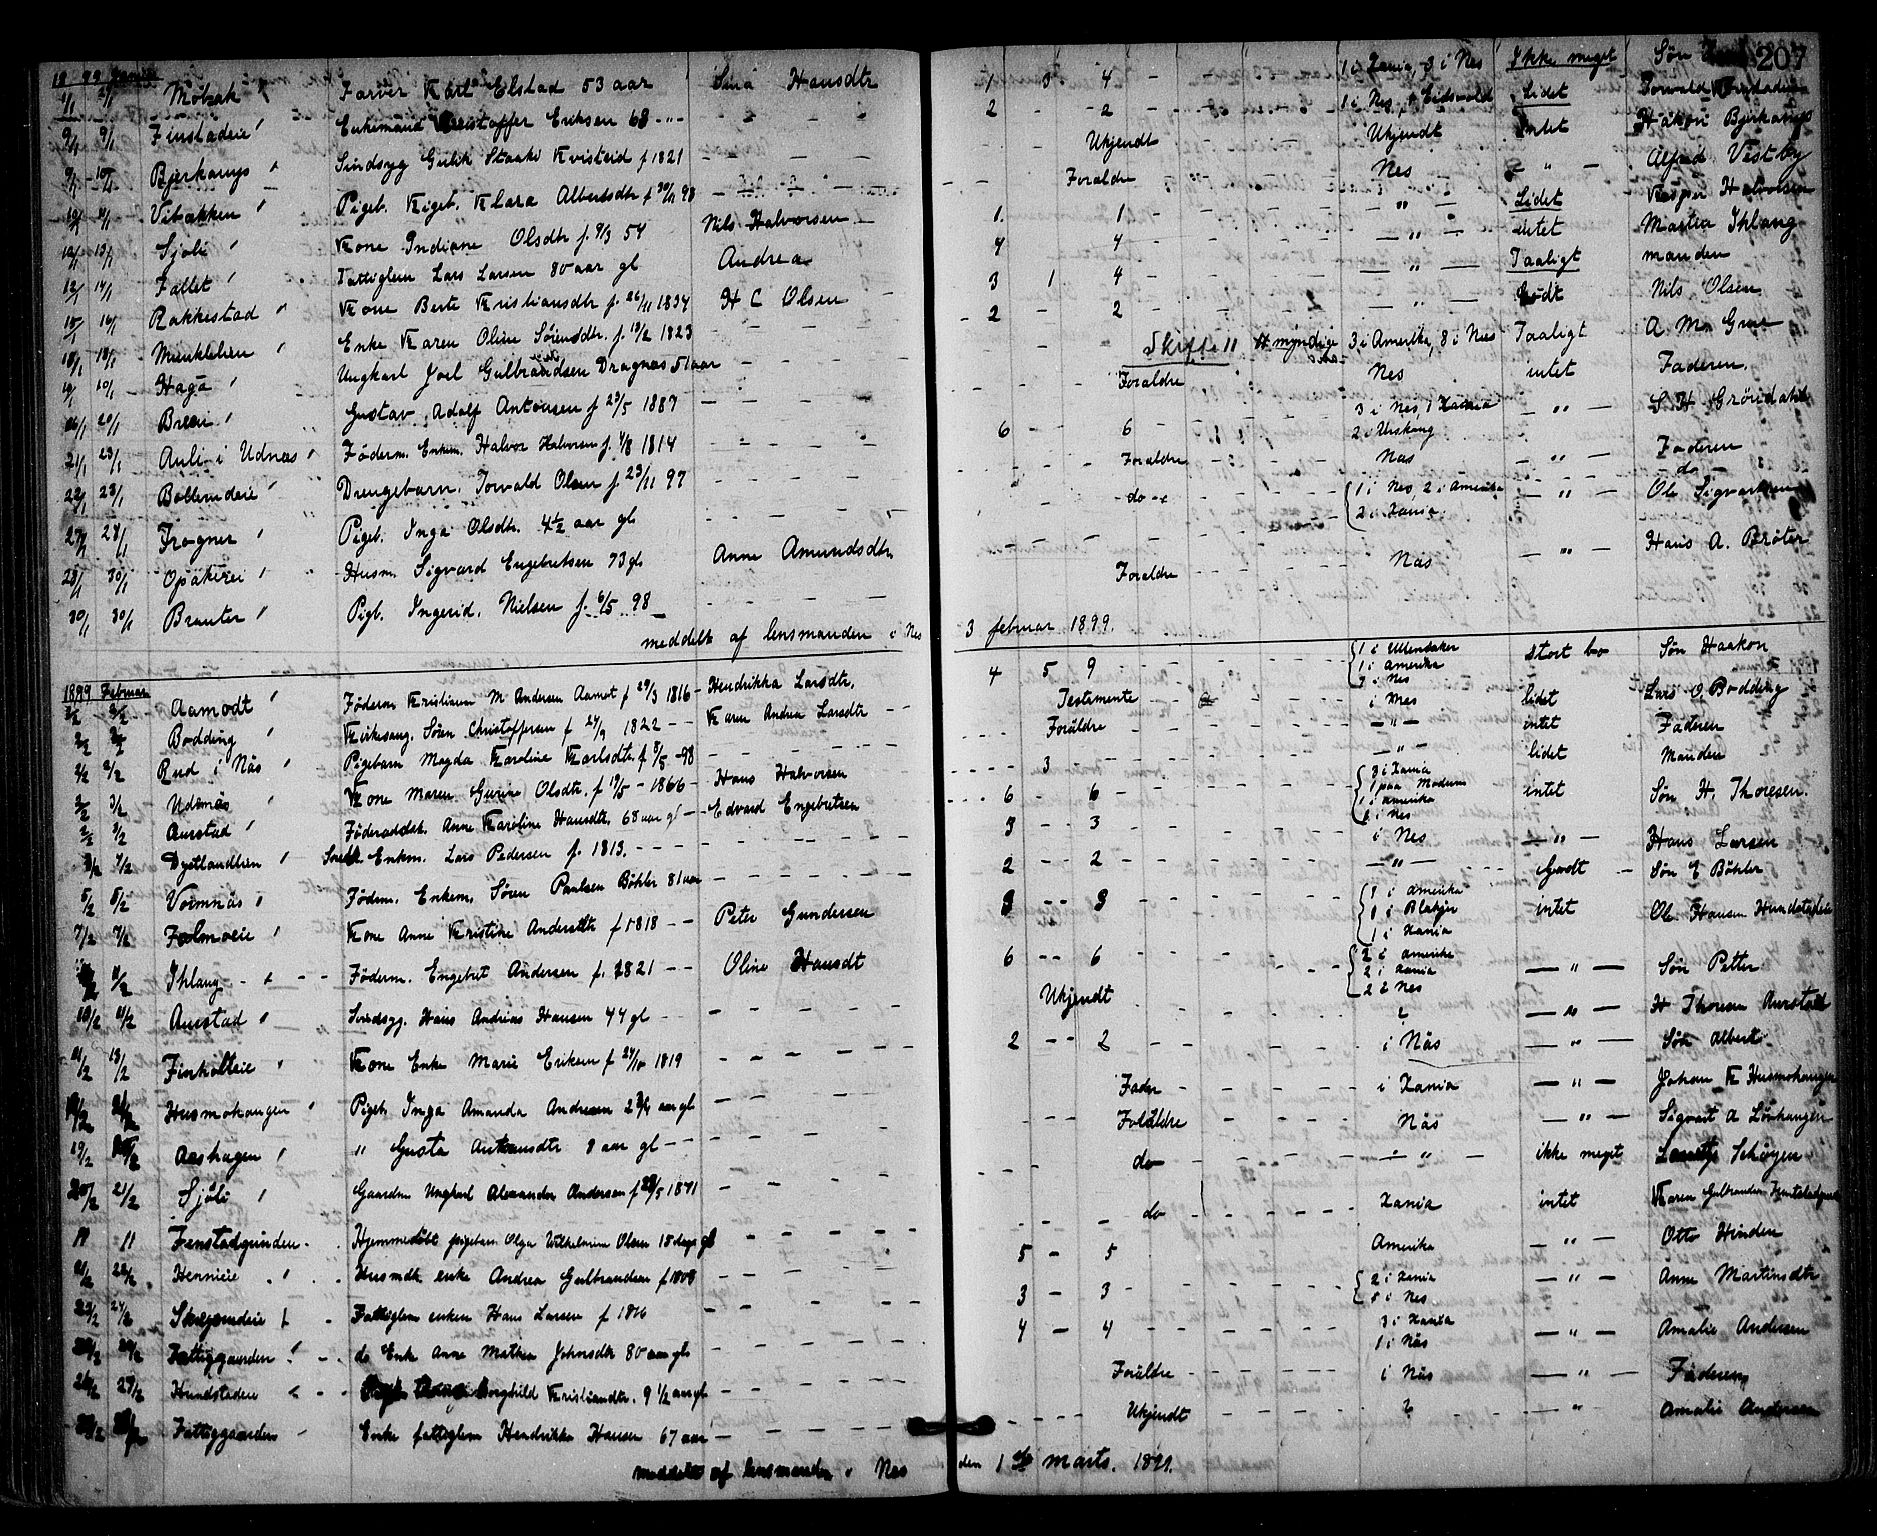 207
18 99 Januar
2/1 Møbak Farver Karl Elstad 53 aar Sina Hansdtr 1 3 4 1 i Xania, 3 i Nes Ikke meget Søn
9/1 9/1 Finstadeie Enkemand Kristoffer Eriksen 68 2 - 2 1 i Nes, 1 Eidsvold Lidet Torvald
9/1 10/1 Bjerkanys Sindsyg Gulik Staaki Kvisteid f 1821 Ukjendt Ukjendt intet Håkon Bjerkanys
10/1 11/1 Vibækken Pigeb. Klara Albertsdtr f 30/11 98 Foraldre Nes " Alfred Vestby
12/1 13/1 Sjøli Kone Indiane Olsdtr f. 9/3 54 Nils Halvorsen 1 1 " Lidet Kasper Halvorsen
12/1 14/1 Fallet Fattiglem Lars Larsen 80 aar gl Andrea 4 4 " intet Martia Ihlang
15/1 16/1 Rakkestad Kone Berte Kristiansdtr f. 26/11 1834 H C Olsen 3 1 4 " Taaligt manden
18/1 18/1 Munkelien Enke Karen Oline Sørensdtr. f. 19/2 1823 2 - 2 " Godt Nils Olsen
19/1 10/1 Haga Ungkarl Joel Gulbrandsen Dragnas 51 aar Skifte 11 myndige 3 i Amerika, 8 i Nes Taaligt A. M.
16/1 20/1 Breen Gustav Adolf Antonsen f 29/5 1887 Foraldre Nes intet Faderen.
21/1 23/1 Auli i Udnæs Føderm. Enkem. Halvor Halvorsen f. 4/8 1814 6 6 3 i Nes, 1 Xania 2 i Urskoug " S. H. Grøndahl
22/1 28/1 Bøllerudeie Drengebarn. Torvald Olsen f 23/11 97 Foraldre Nas " Faderen
27/1 28/1 Frogner Pigeb. Inga Olsdtr. 4½ aar gl do 1 i Nes, 2 i Amerika 2 i Xania " do
28/1 30/1 Opakerei Husm. Sigvard Engebretsen 73 gl Anne Amundsdtr " Ole Sigvartsen
30/1 30/1 Brauter Pigb. Ingerid. Nielsen f. 6/5 98 Foraldre Nas " Hans A. Bråter
meddelt af lensmanden i Nes 3 februar 1899.
1899 Februar
2/2 Aamodt Føderm Kristian M Andersen Aamot f 29/3 1816 Hendrikka Larsdtr. 4 5 9 1 i Ullensaker 1 i Amerika 7 i Nes stort bo Søn Haakon
2/2 Bodding Kirkesang. Søren Christoffersen f 24/9 1822 Karen Andrea Larsdtr Testamente i Nes lidet Lars O. Bodding
2/2 2/2 Rud i Nås Pigebarn Magda Karoline Karlsdtr f 8/5 -98 Foräldre " intet Faderen
2/2 3/2 Udsnæs Kone Maren Gurine Olsdtr. f 19/5 - 1866 Hans Halvorsen 3 " lidet Manden
2/2 3/2 Aurstad Føderaadsk. Anne Karoline Hansdtr. 68 aar gl Edvard Engebretsen 6 6 3 i Xania 1 paa Modum 1 i Amerika 1 i Nes intet Søn H. Thoresen.
3/2 7/2 Dystlandlien Enkm. Lars Pedersen f. 1813. 3 3 i Nes " Hans Larsen
5/2 5/2 Vormnäs Føderm. Enkem. Søren Paulsen Bøhler 81 aar 2 2 " Godt Søn E Bøhler
7/2 7/2 Kone Anne Kristine Andersdtr f 1818 Peter Gundersen 3 3 1 i Amerika 1 i Blakjer 1 i Xania intet Ol. Hansen Hundstadeie
11/2 Ihlang Føderm. Engebret Andersen f. 1821 Oline Hansdt 6 6 2 i Amerika 2 i Xania 2 i Nes " Søn Petter
10/2 11/2 Aurstad Sindssyg. Hans Andreas Hansen 44 gl Ukjendt ? " H Thoresen Aurstad
11/2 13/2 Finholteie Kone Enke Marie Eriksen f 24/10 1819 2 2 i Näs " Søn Albert
Husmohaugen Pigeb. Inga Amanda Andresen 2¾ aar gl Fader i Xania " Johan K Husmohaugen
19/2 Aashagen " Gusta Antonsdtr 8 aar gl Foräldre Näs " Sigvart A Lønhaugen
20/2 21/2 Sjøli Gaardm Ungkarl Alexander Andersen f 28/5 1871 do " ikke meget Schøyen
11 11 Fenstadgrinden Hjemmedøbt pigebarn Olga Wilhelmine Olsen 18 dage gl do Xania intet Karen Gulbrandsen
21/2 22/2 Hernieie Husmdk enke Andrea Gulbrandsen f 1808 5 - 5 Amerika " Otto Hinden
22/2 24/2 Fattiglem enkem Hans Larsen f 1816 3 - 3 2 i Xania 1 i Nes " Anne Martinsdtr
Fattiggaarden do Enke Anne Mathea Johnsdtr 80 aar gl 4 - 4 3 i Xania 1 i Näs " Amalie Andersen
26/2 27/2 Hundstadeie Borghild Kristiandtr. 9 1/2 aar gl Foräldre i Näs " Faderen
Fattiggaarden Enke fattiglem Hendrikke Hansen 67 aar Ukjendt ? " Amalie Andersen
meddelt af lensmanden i Nes den 1ste marts. 1899.